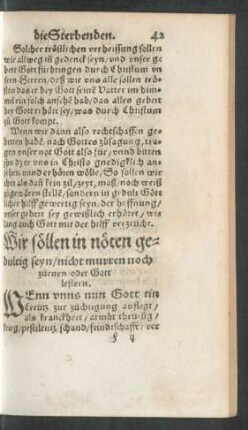 die Sterbenden. 42
Solcher tröstlichen verheissung sollen
wir allweg in gedenck seyn, vnd vnser ge
bett Gott fürbringen durch Christum vn
sern Herren, deß wir vns alle sollen trö
sten das er bey Gott seinē Vatter im him
mel ein solch anseh̄e hab, das alles gebett
bey Gott erhört sey, was durch Christum
zů Gott kompt.
Wenn wir dann also rechtschaffen ge
betten habē, nach Gottes zůsagung, tra
gen vnser not Gott also für, vnnd bitten
jhn dz er vns in Christo gnedigklich an
sehen vnd erhören wölle, So sollen wir
jhm als daß kein zil, zeyt, maß, noch weiß
zů gewären stelle, sondern in gedult Gött
licher hilff gewertig seyn, der hoffnung,
vnser gebett sey gewißlich erhört, wie
lang auch Gott mit der hilff verzeücht.
Wir söllen in nöten ge-
dultig seyn/ nicht murren noch
zürnen oder Gott
lestern.
WEnn vnns nun Gott ein
Creütz zur züchtigung aufflegt,
als kranckheit, armůt theürung,
krieg, pestilentz, schand, feindtschafft, ver